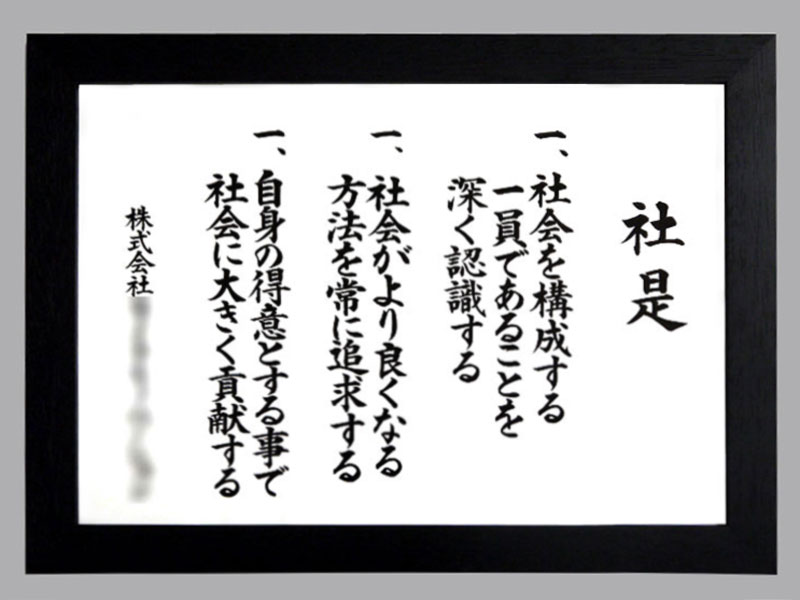 社是
一、社会を構成する
一員であることを
深く認識する
一、社会がより良くなる
方法を常に追求する
一、自身の得意とする事で
社会に大きく貢献する
株式会社